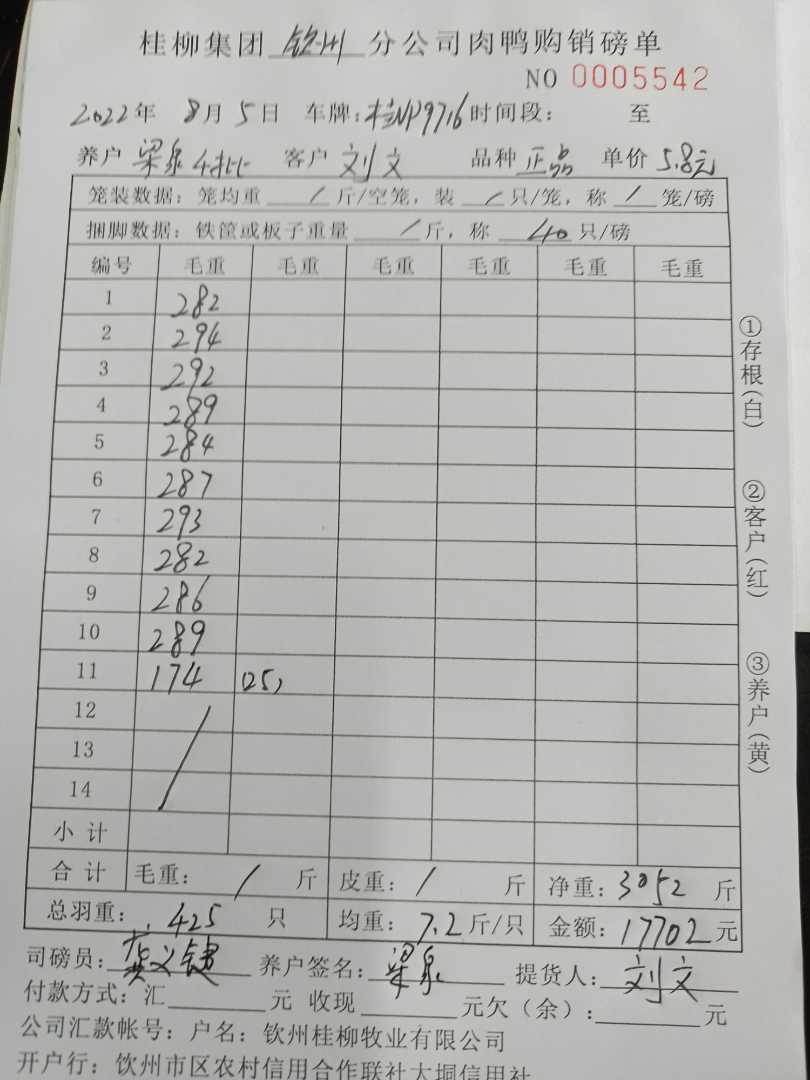 桂柳集团 钦州 分公司肉鸭购销磅单
NO 0005542
2022年 8月5日 车牌:桂NP9716 时间段: 至
养户 梁泉4批 客户 刘文 品种 正品 单价 5.8元
笼装数据: 笼均重 / 斤/空笼, 装 / 只/笼, 称 / 笼/磅
捆脚数据: 铁筐或板子重量 / 斤, 称 40 只/磅
编号 毛重 毛重 毛重 毛重 毛重 毛重
1 282
2 294
3 292
4 289
5 284
6 287
7 293
8 282
9 286
10 289
11 174 (25)
12
13
14
小计
合计 毛重: / 斤 皮重: / 斤 净重: 3052 斤
总羽重: 425 只 均重: 7.2 斤/只 金额: 17702 元
司磅员: 养户签名: 梁泉 提货人: 刘文
付款方式: 汇 元 收现 元欠(余): 元
公司汇款帐号: 户名: 钦州桂柳牧业有限公司
开户行: 钦州市区农村信用合作联社大垌信用社
①存根(白)
②客户(红)
③养户(黄)